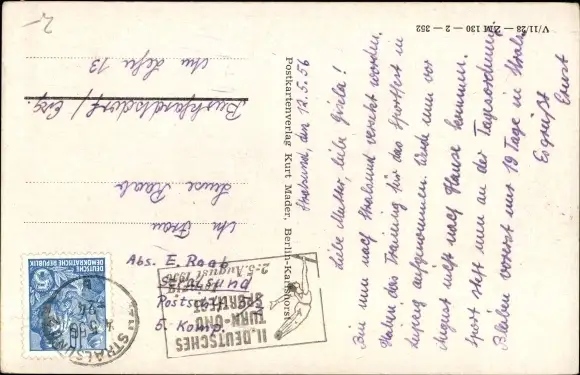 Stralsund, den 12.5.56
Liebe Mutter, liebe Gisela!
Bin nun nach Stralsund versetzt worden.
Haben das Training für das Sportfest in
Leipzig aufgenommen. Werde nun vor
August nicht nach Hause kommen.
Sport steht nun an der Tagesordnung.
Bleiben vorerst nur 19 Tage in Strals.
Es grüßt
Ernst
Postkartenverlag Kurt Mader, Berlin-Karlshorst
V/11/28 — ZIM 130 — 2 — 352
2,-
Abs. E. Raab
Stralsund
Postschl.
5. Komp.
II. DEUTSCHES
TURN- UND
SPORTFEST
2.-5. August 1956
STRALSUND
DEUTSCHE
DEMOKRATISCHE REPUBLIK
10
An Frau
Luise Raab
Burkhardtsdorf/Erzg.
13